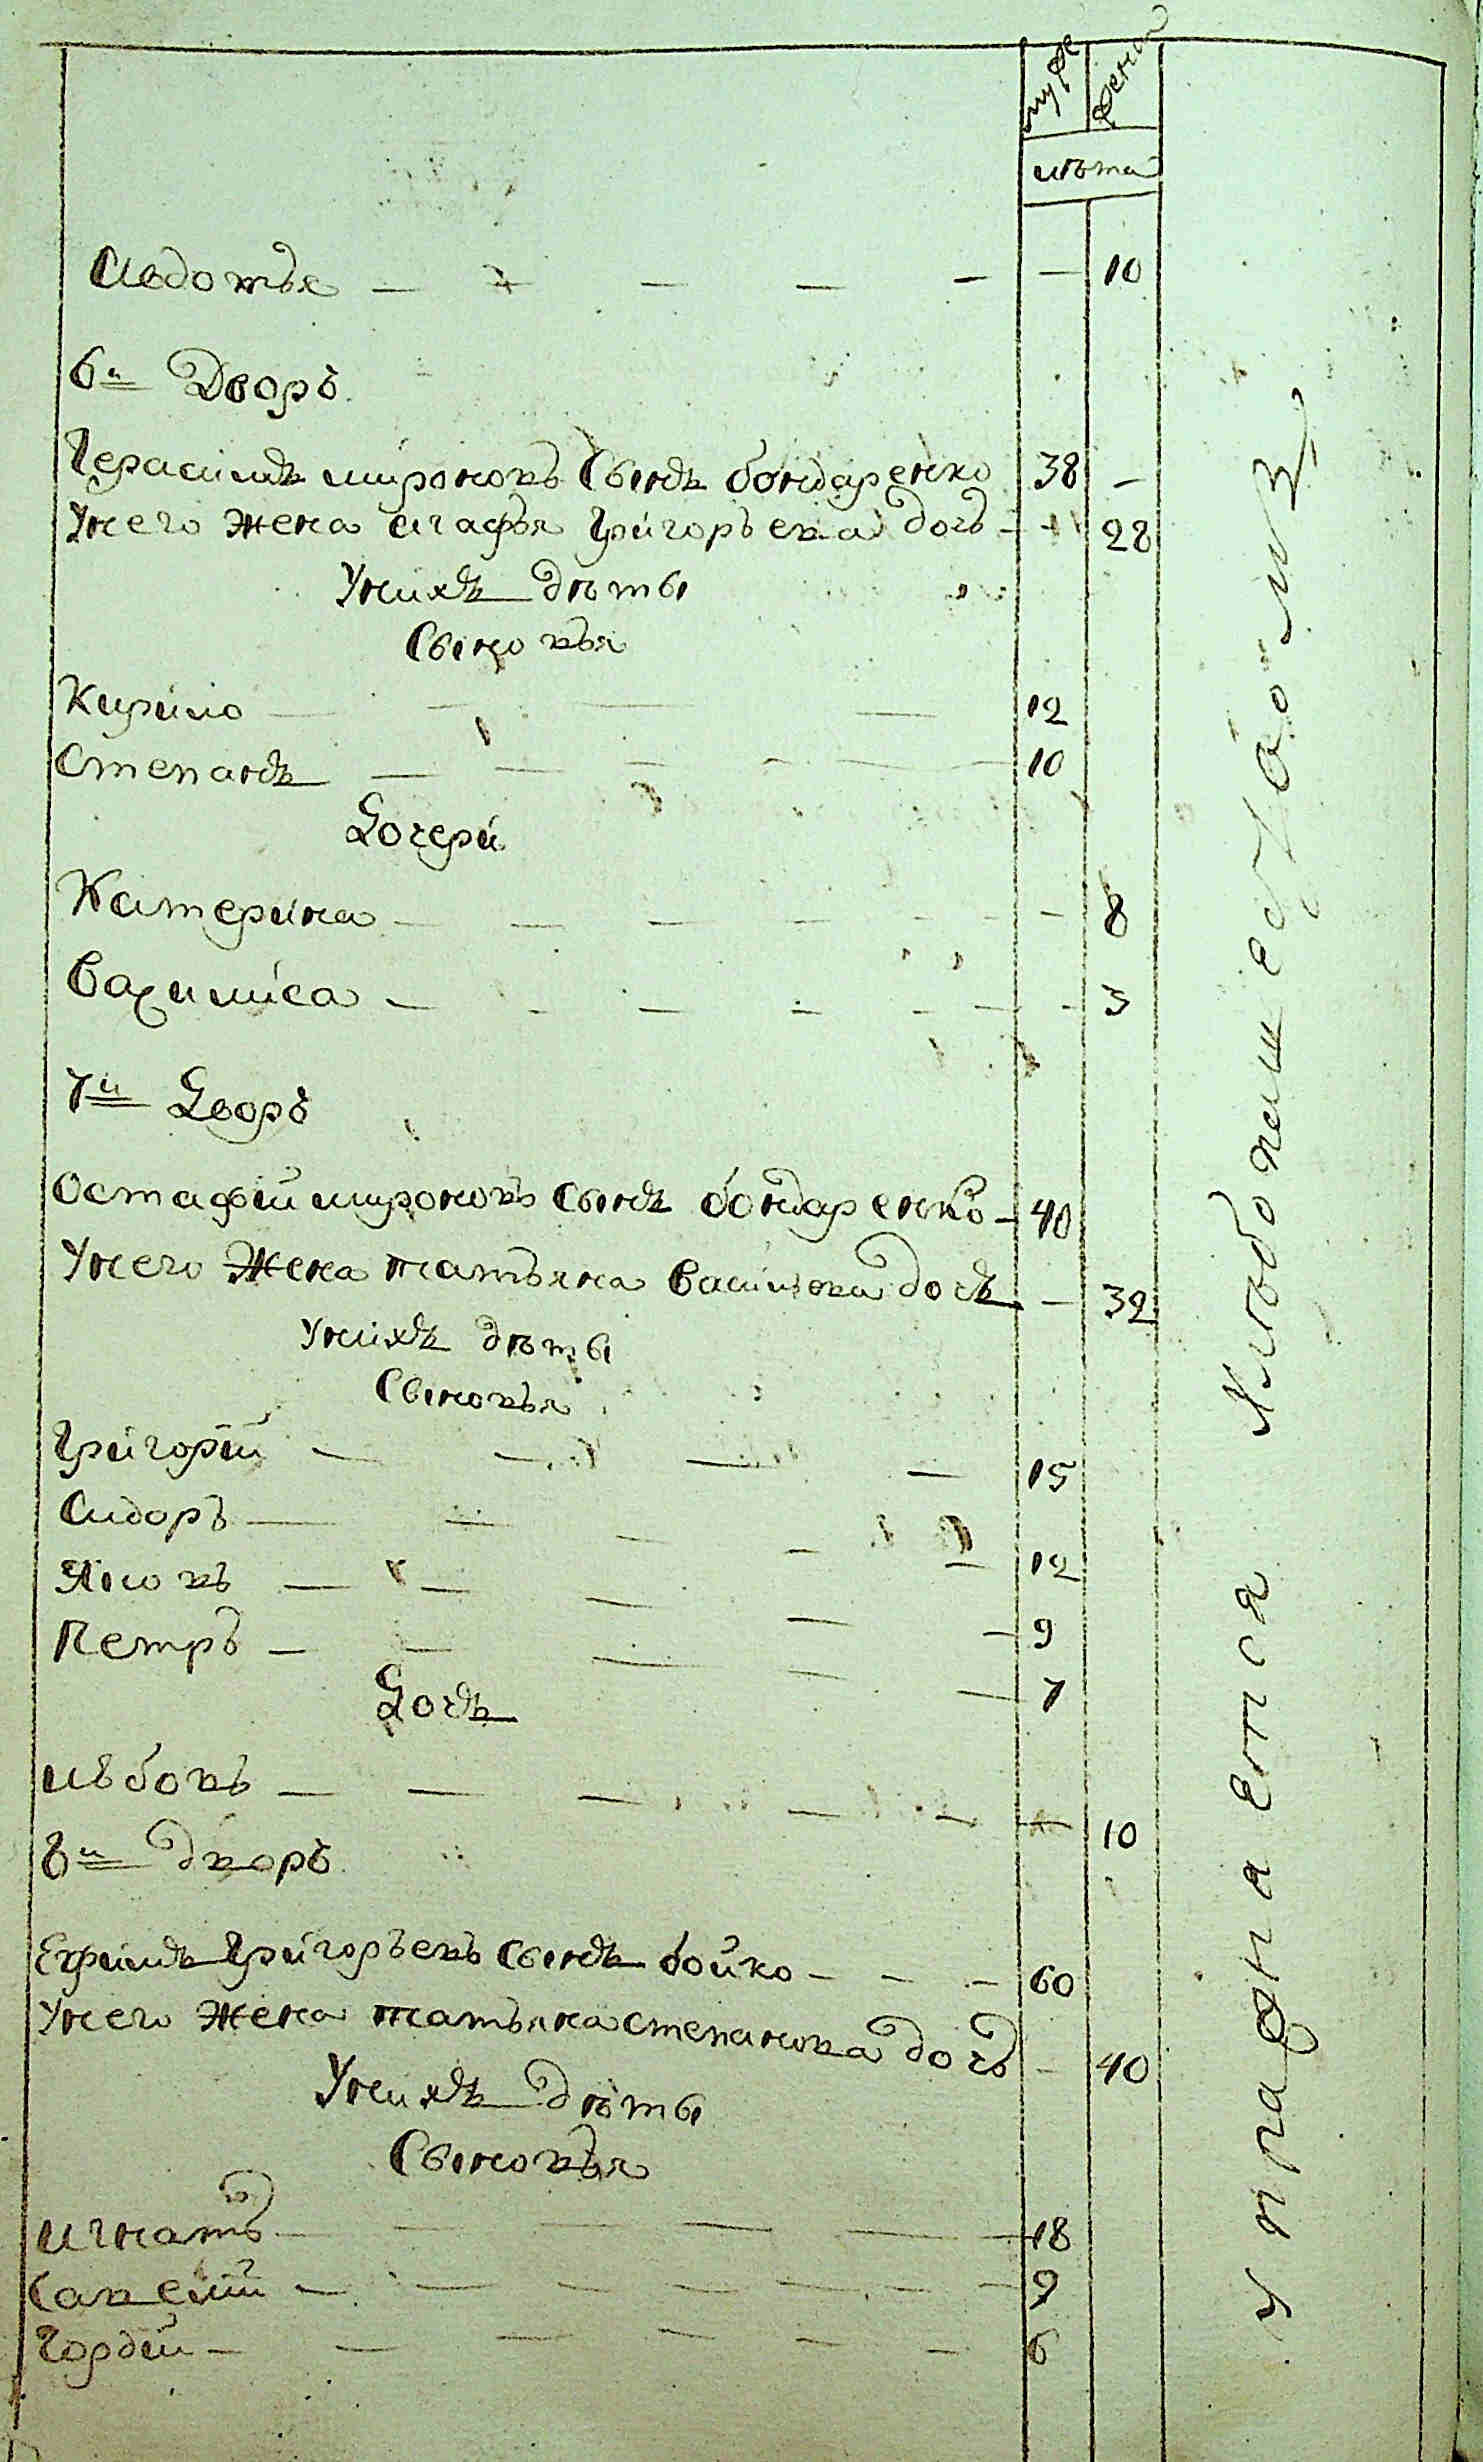 муже женс
лѣта
Авдотья — — — — — — 10
6й Дворъ
Герасимъ мироновъ Сынъ бондаренко 38 —
Унего жена агафья григорьева дочь — — 28
Унихъ дѣты
Сыновья
Кирило — — — — 12
Степанъ — — — — — — 10
Дочери
Катерина — — — — — — 8
Васимиса — — — — — — — 3
7й Дворъ
Остафий мироновъ сынъ бондаренко — 40
Унего жена татьяна васильева дочь — 32
Унихъ дѣты
Сыновья
Григорий — — — — 15
Сидоръ — — — — — 12
Яковъ — — — — — 9
Петръ — — — — — 7
Дочь
Любовъ — — — — — — 10
8й дворъ
Ефимъ григорьевъ сынъ бойко — — — 60
Унего жена татьяна степанова дочь — 40
Унихъ дѣты
Сыновья
игнатъ — — — — — — 18
Савелий — — — — — — — 9
Гордѣй — — — — — — 6
упражнаетса Хлѣбопашес